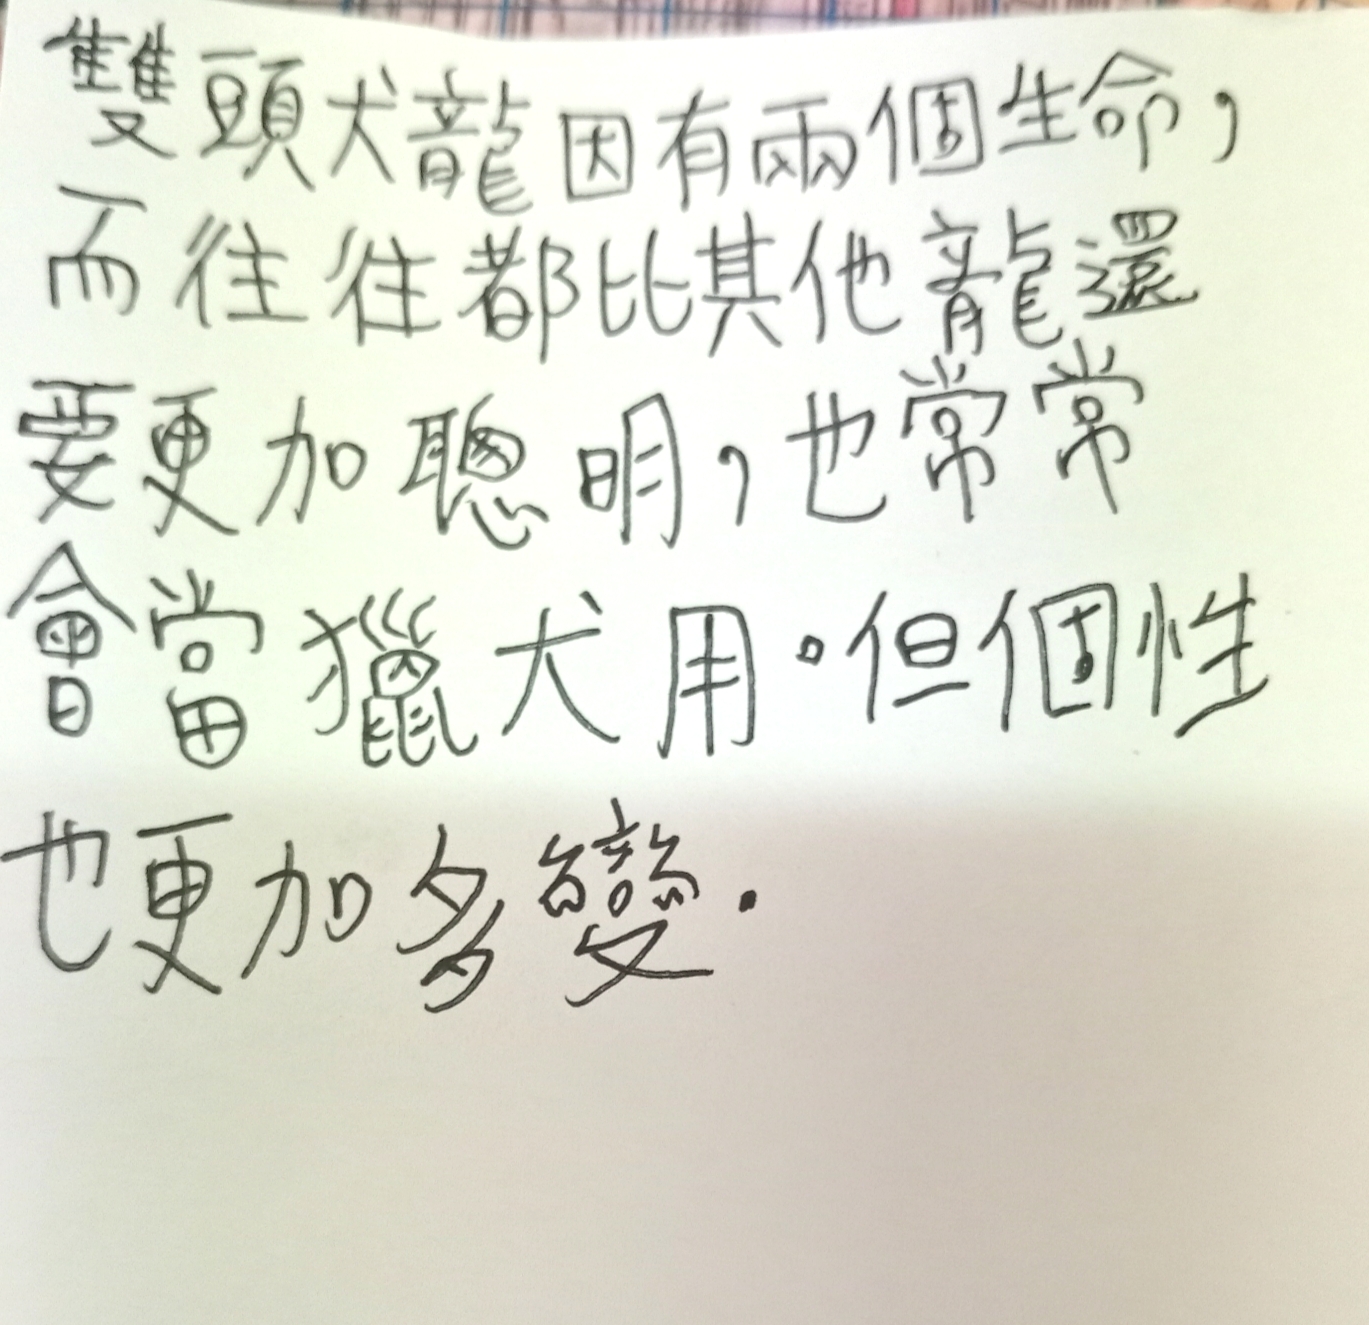 雙頭犬龍因有兩個生命，
而往往都比其他龍還
要更加聰明，也常常
會當獵犬用。但個性
也更加多變.